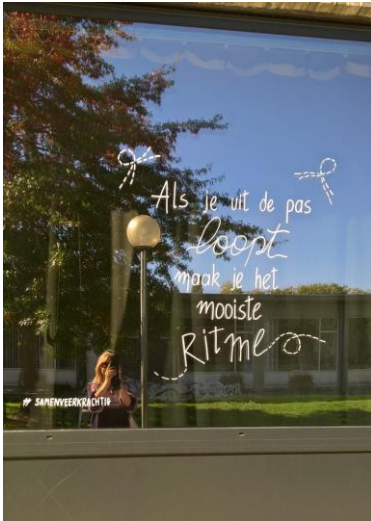 Als je uit de pas
loopt
maak je het
mooiste
Ritme
# SAMENVEERKRACHTIG